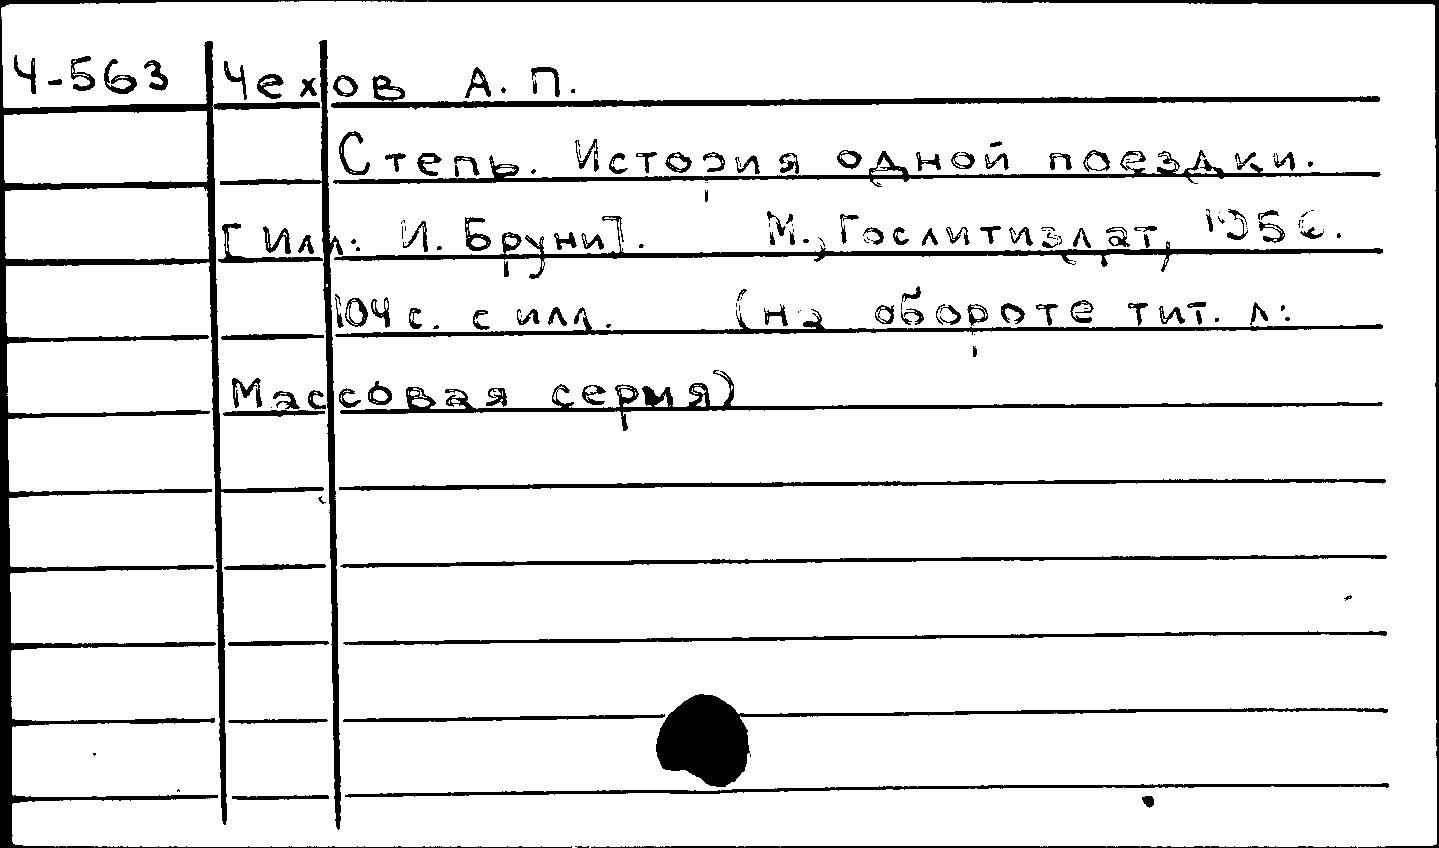 Ч-563 Чехов А. П.
Степь. История одной поездки.
[Илл: И. Бруни]. М., Гослитиздат, 1956.
104 с. с илл. (на обороте тит. л:
Массовая серия)